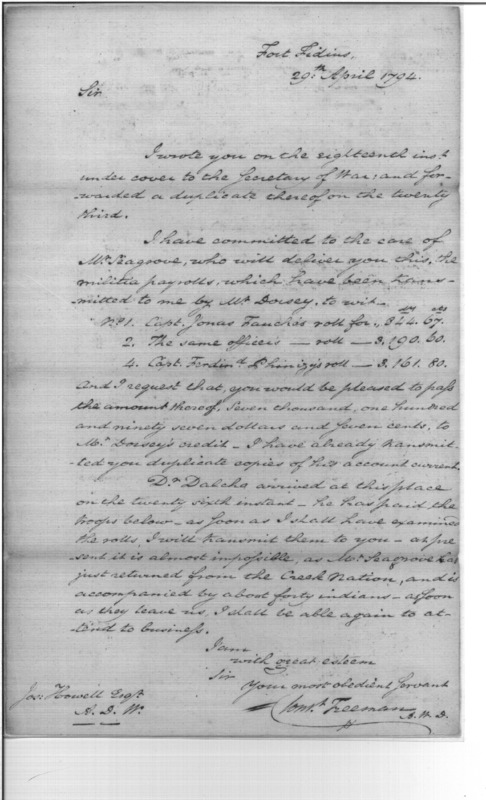 Fort Fidius,
29th April 1794.
Sir
I wrote you on the eighteenth inst.
under cover to the Secretary of War: and for-
warded a duplicate thereof on the twenty
third.
I have committed to the care of
Mr. Seagrove, who will deliver you this, the
militia payrolls, which have been trans-
mitted to me by Mr. Dorsey, to wit—
No. 1. Capt. Jonas Fauche's roll for, 844. 67.
2. The same officers — roll — 3,190. 60.
4. Capt. Ferdind. Phinizy's roll — 3,161. 80.
And I request that, you would be pleased to pass
the amount thereof, Seven thousand, one hundred
and ninety seven dollars and seven cents, to
Mr. Dorsey's credit — I have already transmit-
-ted you duplicate copies of his account current.
Dr. Dalcho arrived at this place
on the twenty sixth instant — he has paid, the
troops below — as soon as I shall have examined
the rolls, I will transmit them to you — at pre
sent it is almost impossible, as Mr. Seagrove has
just returned from the Creek Nation, and is
accompanied by about forty indians — as soon
as they leave us, I shall be able again to at-
-tend to business.
I am
with great esteem
Sir
Your most obedient servant
Const. Freeman
A. W. D.
Jos: Howell Esqr.
A. D. W.